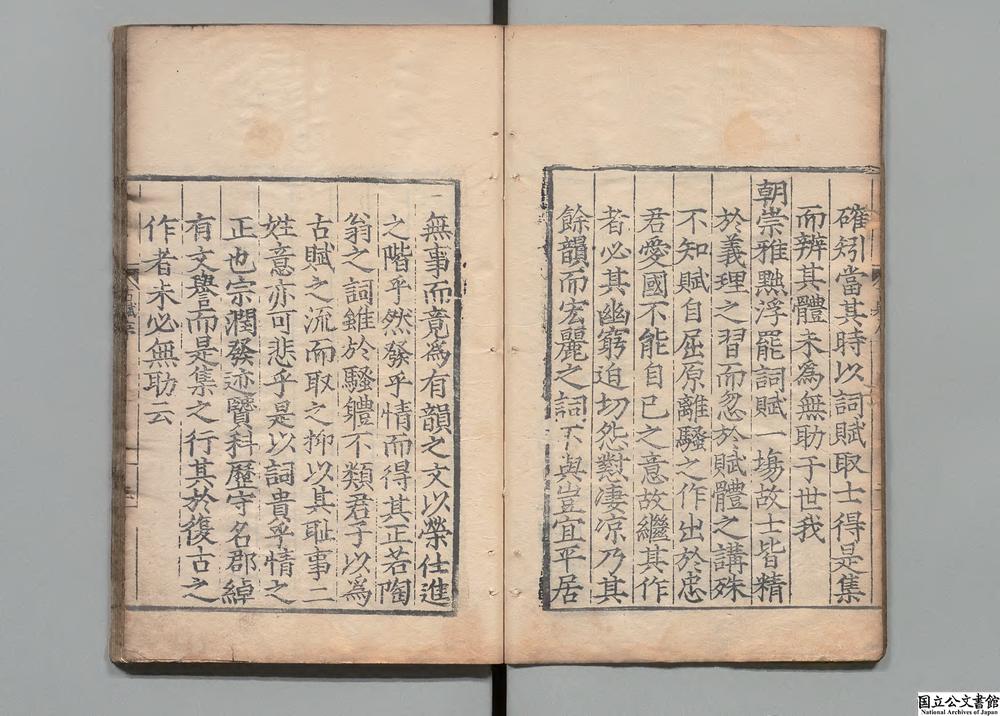 確矧當其時以詞賦取士得是集
而辨其體未為無助于世我
朝崇雅黜浮罷詞賦一塲故士皆精
於義理之習而忽於賦體之講殊
不知賦自屈原離騷之作出於忠
君愛國不能自已之意故繼其作
者必其幽窮迫切怨懟凄凉乃其
餘韻而宏麗之詞不與豈宜平居
無事而竟為有韻之文以榮仕進
之階乎然發乎情而得其正若陶
翁之詞雖於騷軆不類君子以為
古賦之流而取之抑以其耻事二
姓意亦可悲乎是以詞貴乎情之
正也宗潤發迹賢科歷守名郡綽
有文譽而是集之行其於復古之
作者未必無助云
国立公文書館
National Archives of Japan